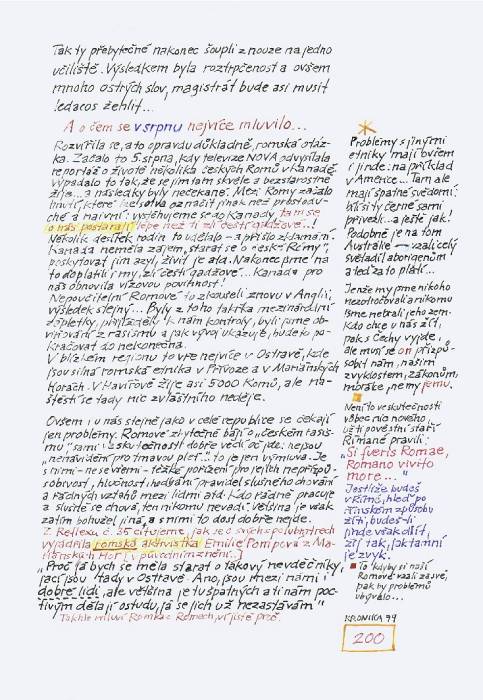 Tak ty přebytečné nakonec šoupli z nouze na jedno
učiliště. Výsledkem byla roztrpčenost a ovšem
mnoho ostrých slov, magistrát bude asi musit
ledacos žehlit...
A o čem se v srpnu nejvíce mluvilo...
Rozvířila se, a to opravdu důkladně, romská otáz-
ka. Začalo to 5. srpna, kdy televize NOVA odvysílala
reportáž o životě několika českých Romů v Kanadě.
Vypadalo to tak, že se jim tam skvěle a bezstarostně
žije... a následky byly nečekané. Mezi Romy začalo
hnutí, které lze označit jinak než prostodu-
ché a naivní: vystěhujeme se do Kanady, tam se
o nás postarají lépe než ti zlí čeští gadžové...!
Několik desítek rodin to udělalo – a přišlo zklamání.
Kanada neměla zájem, starat se o "české Rómy",
poskytovat jim azyl, živit je atd. Nakonec jsme na
to doplatili i my, zlí čeští gadžové... Kanada pro
nás obnovila vízovou povinnost!
Nepoučitelní Romové to zkouseli znovu v Anglii,
výsledek stejný... Byly z toho takřka mezinárodní
zápletky, přijížděly k nám kontroly, byli jsme ob-
viňováni z rasismu a jak vývoj ukazuje, bude to po-
kračovat do nekonečna.
V blízkém regionu to vře nejvíce v Ostravě, kde
jsou silná romská etnika v Přívoze a v Mariánských
Horách. V Havířově žije asi 5000 Romů, ale na-
štěstí se tady nic zvláštního neděje.
Ovšem, i u nás stejně jako v celé republice se čekají
jen problémy. Romové zbytečně bájí o "českém rasis-
mu", sami ve skutečnosti dobře vědí oč jde: nejsou
"nenáviděni pro tmavou pleť" to je jen výmluva. Je
s nimi – ne se všemi – těžké pořízení pro jejich nepřizpů-
sobivost, hlučnost, nedbání pravidel slušného chování
a řádných vztahů mezi lidmi atd. Kdo řádně pracuje
a slušně se chová, ten nikomu nevadí. Většina je však
zatím bohužel jiná, a s nimi to dost dobře nejde.
Z Reflexu č. 35 citujeme, jak se o svých polubratrech
vyjádřila romská aktivistka Emilie Pompová z Ma-
riánských Hor [v původním znění...]
"Proč já bych se měla starat o takový nevděčníky,
jací jsou tady v Ostravě. Ano, jsou mezi námi i
dobré lidi, ale většina je tu špatných a ti nám poc-
tivým dělají ostudu, já se jich už nezastávám"
Takhle mluví Romka o Romech, ví jistě proč.
Problémy s jinými
etniky mají ovšem
i jinde: na příklad
v Americe... Tam ale
mají špatné svědomí:
bílí si ty černé sami
přivezli... a ještě jak!
Podobně je na tom
Austrálie – vzali celý
světadíl aboriginům
a teď za to platí...
Jenže my jsme nikoho
nezotročovali a nikomu
jsme nebrali jeho zem.
Kdo chce u nás žít,
pak s Čechy vyjde,
ale musí se on přizpů-
sobit nám, našim
zvyklostem, zákonům,
morálce, ne my jemu.
Není to ve skutečnosti
vůbec nic nového,
už ti pověstní staří
Římané pravili:
"Si fueris Romae,
Romano vivito
more..."
Jestliže budeš
v Římě, hleď po
římském způsobu
žíti, budeš-li
jinde však dlít,
žij tak, jak tam ní
je zvyk.
To kdyby si naši
Romové vzali za své,
pak by problémů
ubývalo...
KRONIKA 99
200